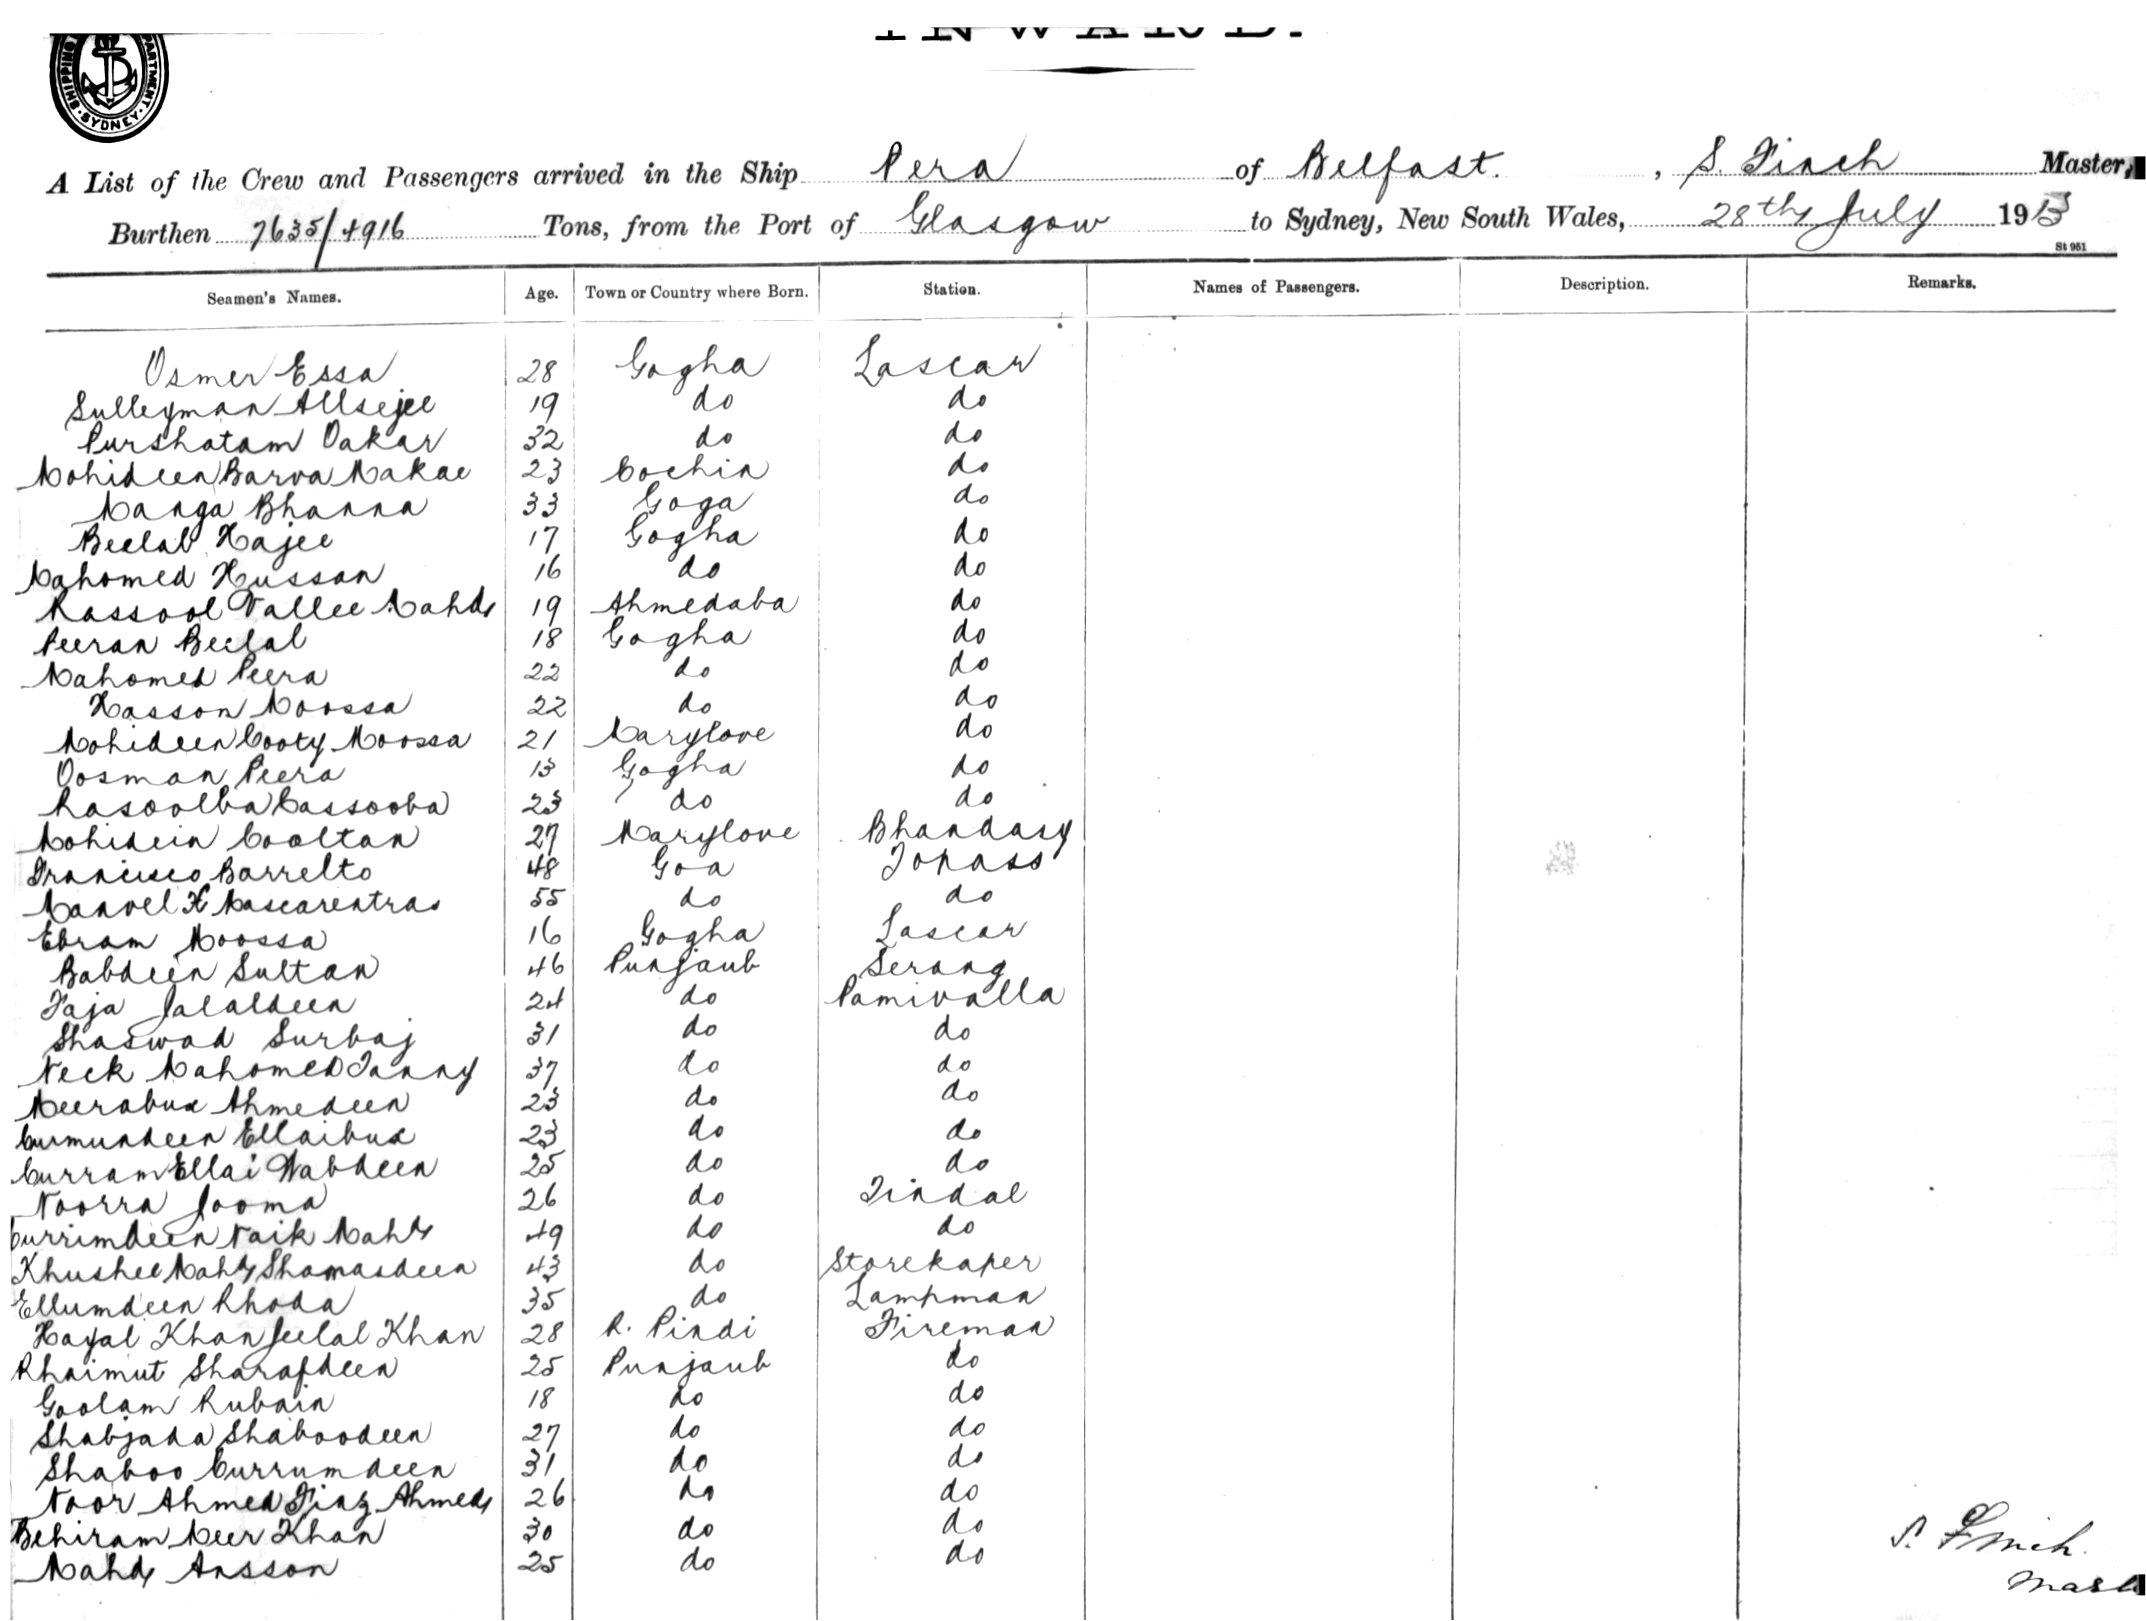 INWARD.
SHIPPING DEPARTMENT · SYDNEY ·
A List of the Crew and Passengers arrived in the Ship Pera of Belfast. , S. Finch Master,
Burthen 7635/4916 Tons, from the Port of Glasgow to Sydney, New South Wales, 28th July 1913
St 951
Seamen's Names. Age. Town or Country where Born. Station. Names of Passengers. Description. Remarks.
Osmer Essa 28 Gogha Lascar
Sulleyman Allsejee 19 do do
Purshatam Dakar 32 do do
Mohideen Barva Makae 23 Cochin do
Manga Bhanna 33 Goga do
Beelal Hajee 17 Gogha do
Mahomed Hussan 16 do do
Rassool Vallee Mahd 19 Ahmedaba do
Peeran Beelal 18 Gogha do
Mahomed Peera 22 do do
Hasson Moossa 22 do do
Mohideen Cooty Moossa 21 Marylove do
Oosman Peera 13 Gogha do
Rasoolba Cassooba 23 do do
Mohidein Cooltan 27 Marylove Bhandary
Francisco Barrelto 48 Goa Topass
Manoel X Mascarentras 55 do do
Ebram Moossa 16 Gogha Lascar
Babdeen Sultan 46 Punjaub Serang
Faja Jalaldeen 24 do Pamivalla
Shaswad Surbaj 31 do do
Neck Mahomed Fanny 37 do do
Meerabux Ahmedeen 23 do do
Curmundeen Ellaibux 23 do do
Curram Ellai Wabdeen 25 do do
Noorra Jooma 26 do Tindal
Currimdeen Naik Mahd 49 do do
Khushee Mahd Shamasdeen 43 do Storekaper
Ellumdeen Rhoda 35 do Lampman
Hayal Khan Jeelal Khan 28 R. Pindi Fireman
Rhaimut Sharafdeen 25 Punjaub do
Goolam Rubain 18 do do
Shabjada Shaboodeen 27 do do
Shaboo Currumdeen 31 do do
Noor Ahmed Fiaz Ahmed 26 do do
Behiram Meer Khan 30 do do
Mahd Ansson 25 do do
S. Finch.
Mast